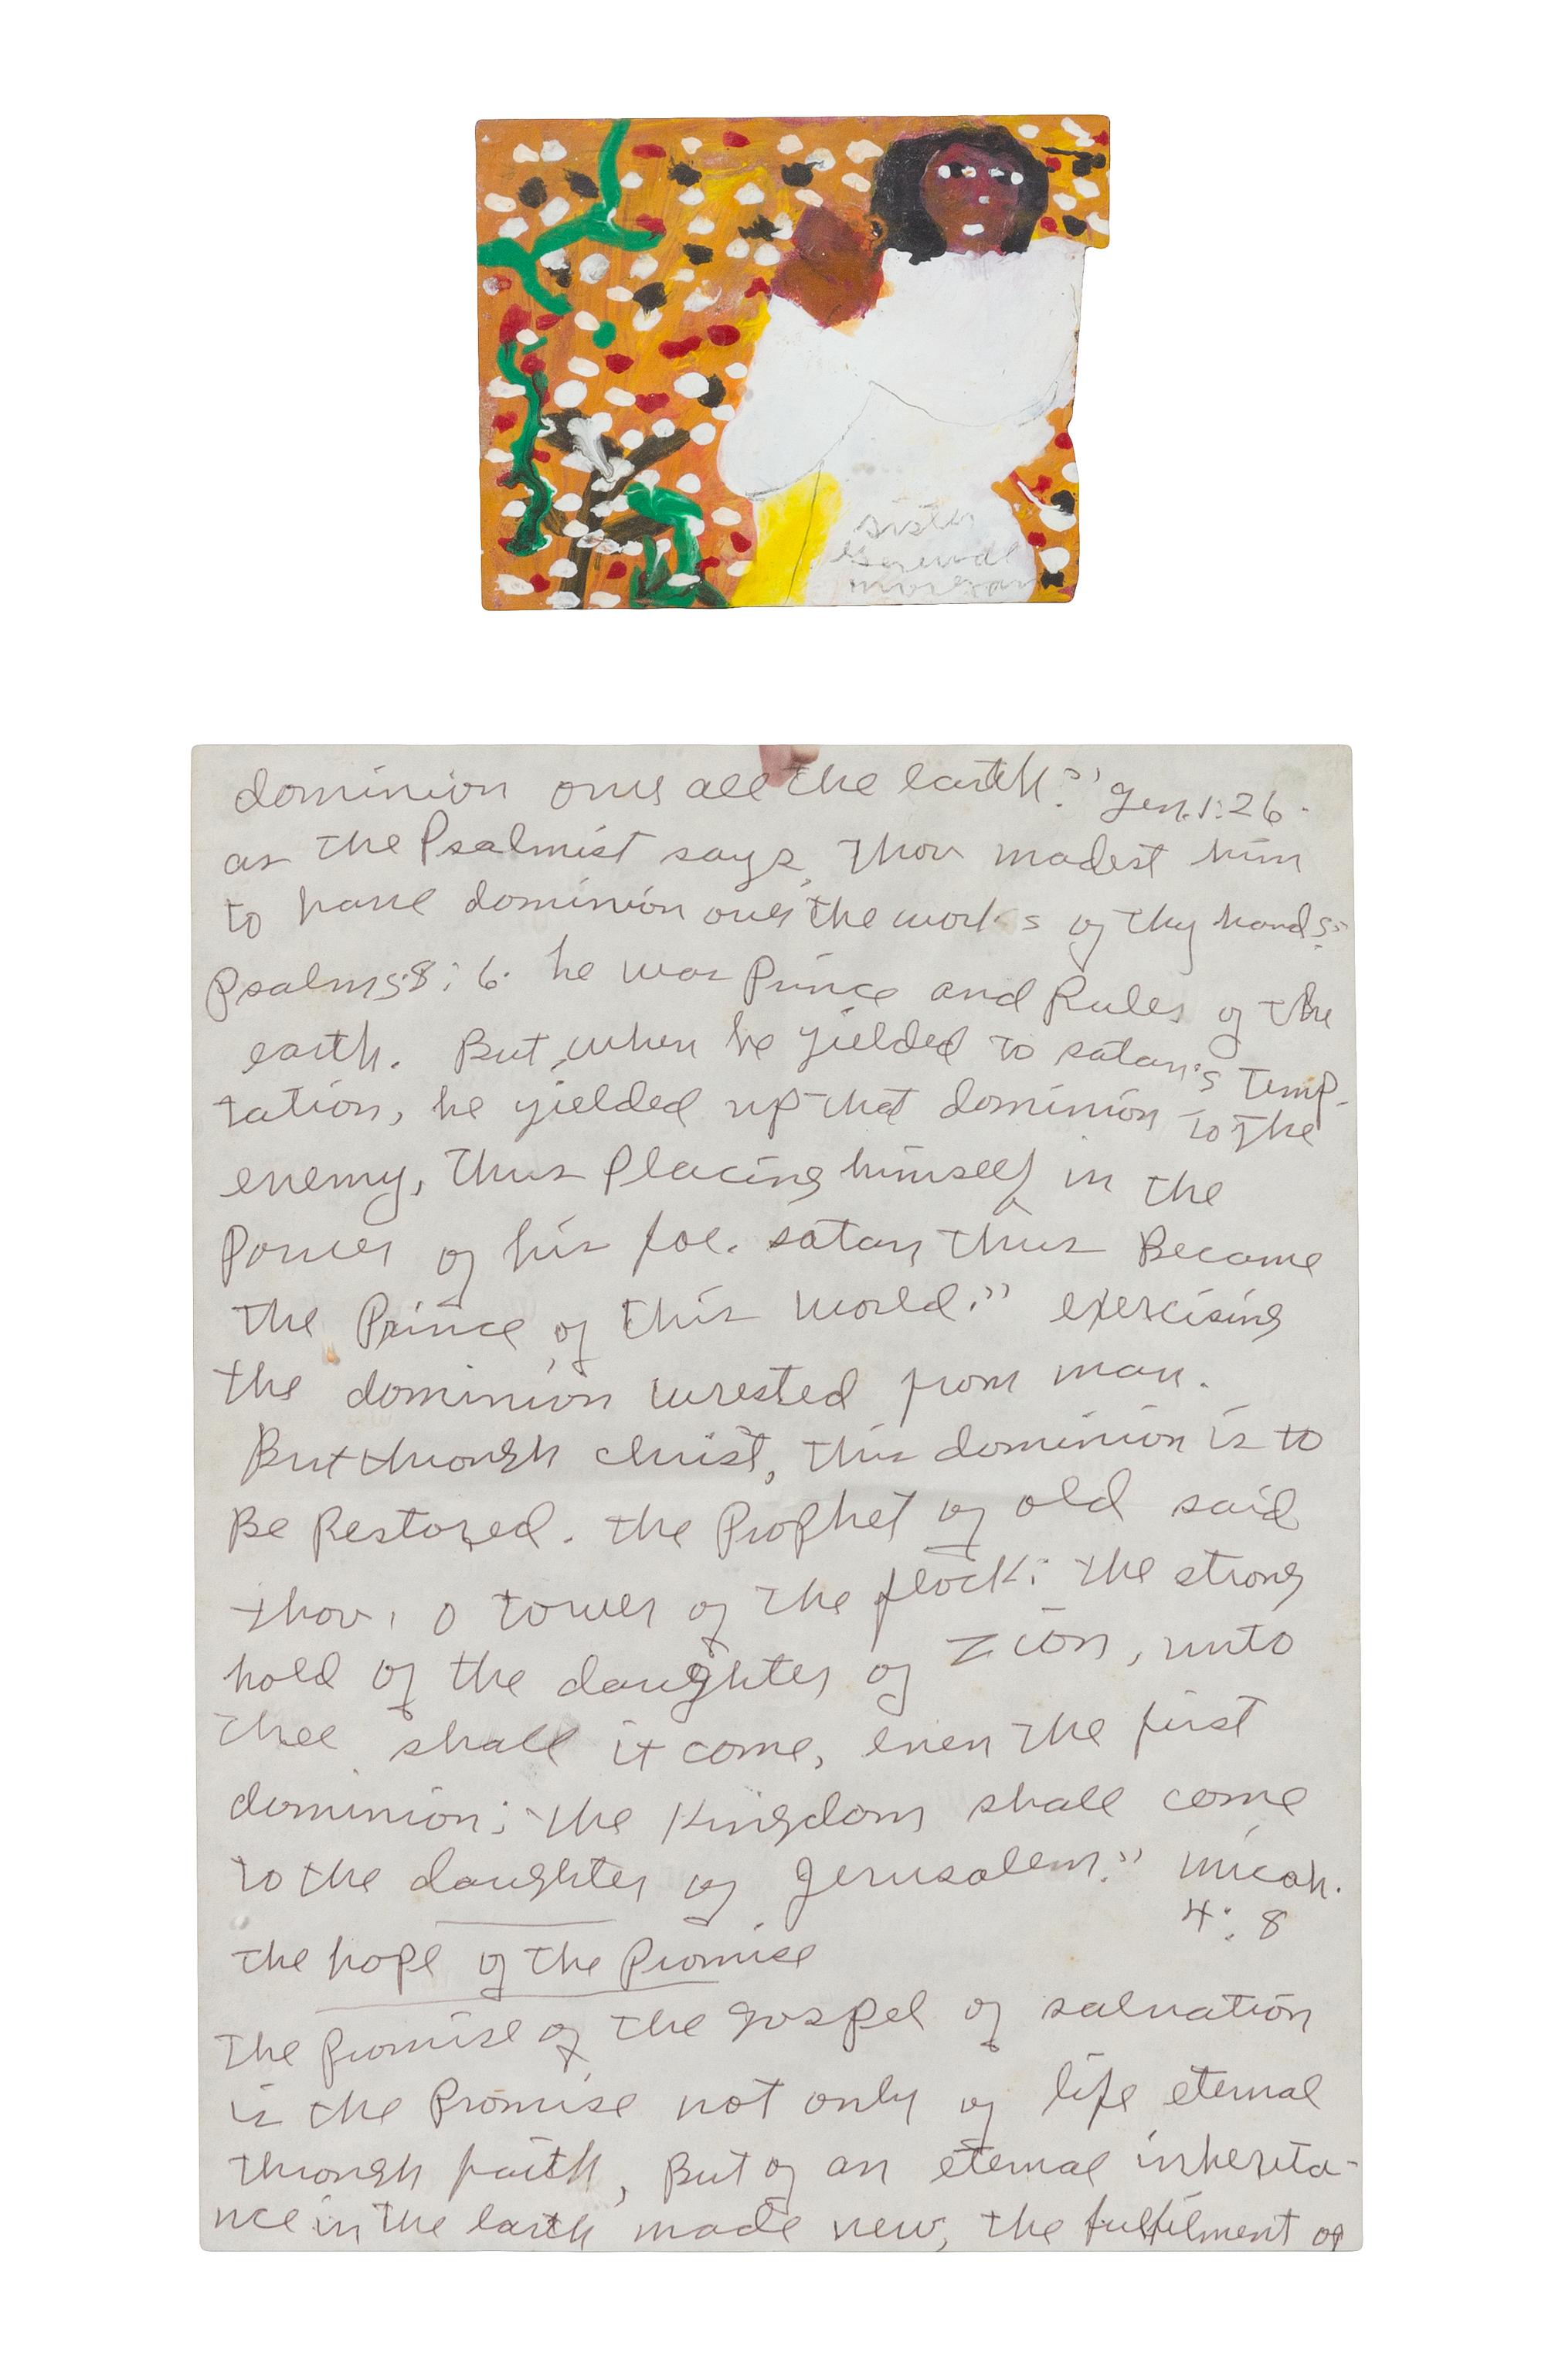 sister
Gertrude
morgan
dominion over all the earth." Gen. 1:26.
as the Psalmist says, Thou madest him
to have dominion over the works of thy hands."
Psalms. 8:6. he was Prince and Ruler of the
earth. But, when he yielded to satan's Temp-
tation, he yielded up that dominion to the
enemy, Thus Placing himself in the
Power of his foe. satan, thus Became
the Prince of this world." exercising
the dominion wrested from man.
But through christ, this dominion is to
Be Restored. the Prophet of old said
thou, O tower of the flock: the strong
hold of the daughter of Zion, unto
Thee shall it come, even the first
dominion; the Kingdom shall come
to the daughter of Jerusalem." micah.
4:8
the hope of the Promise
The Promise of the gospel of salvation
is the Promise not only of life eternal
through faith, But of an eternal inherita-
nce in the earth made new, the fulfilment of